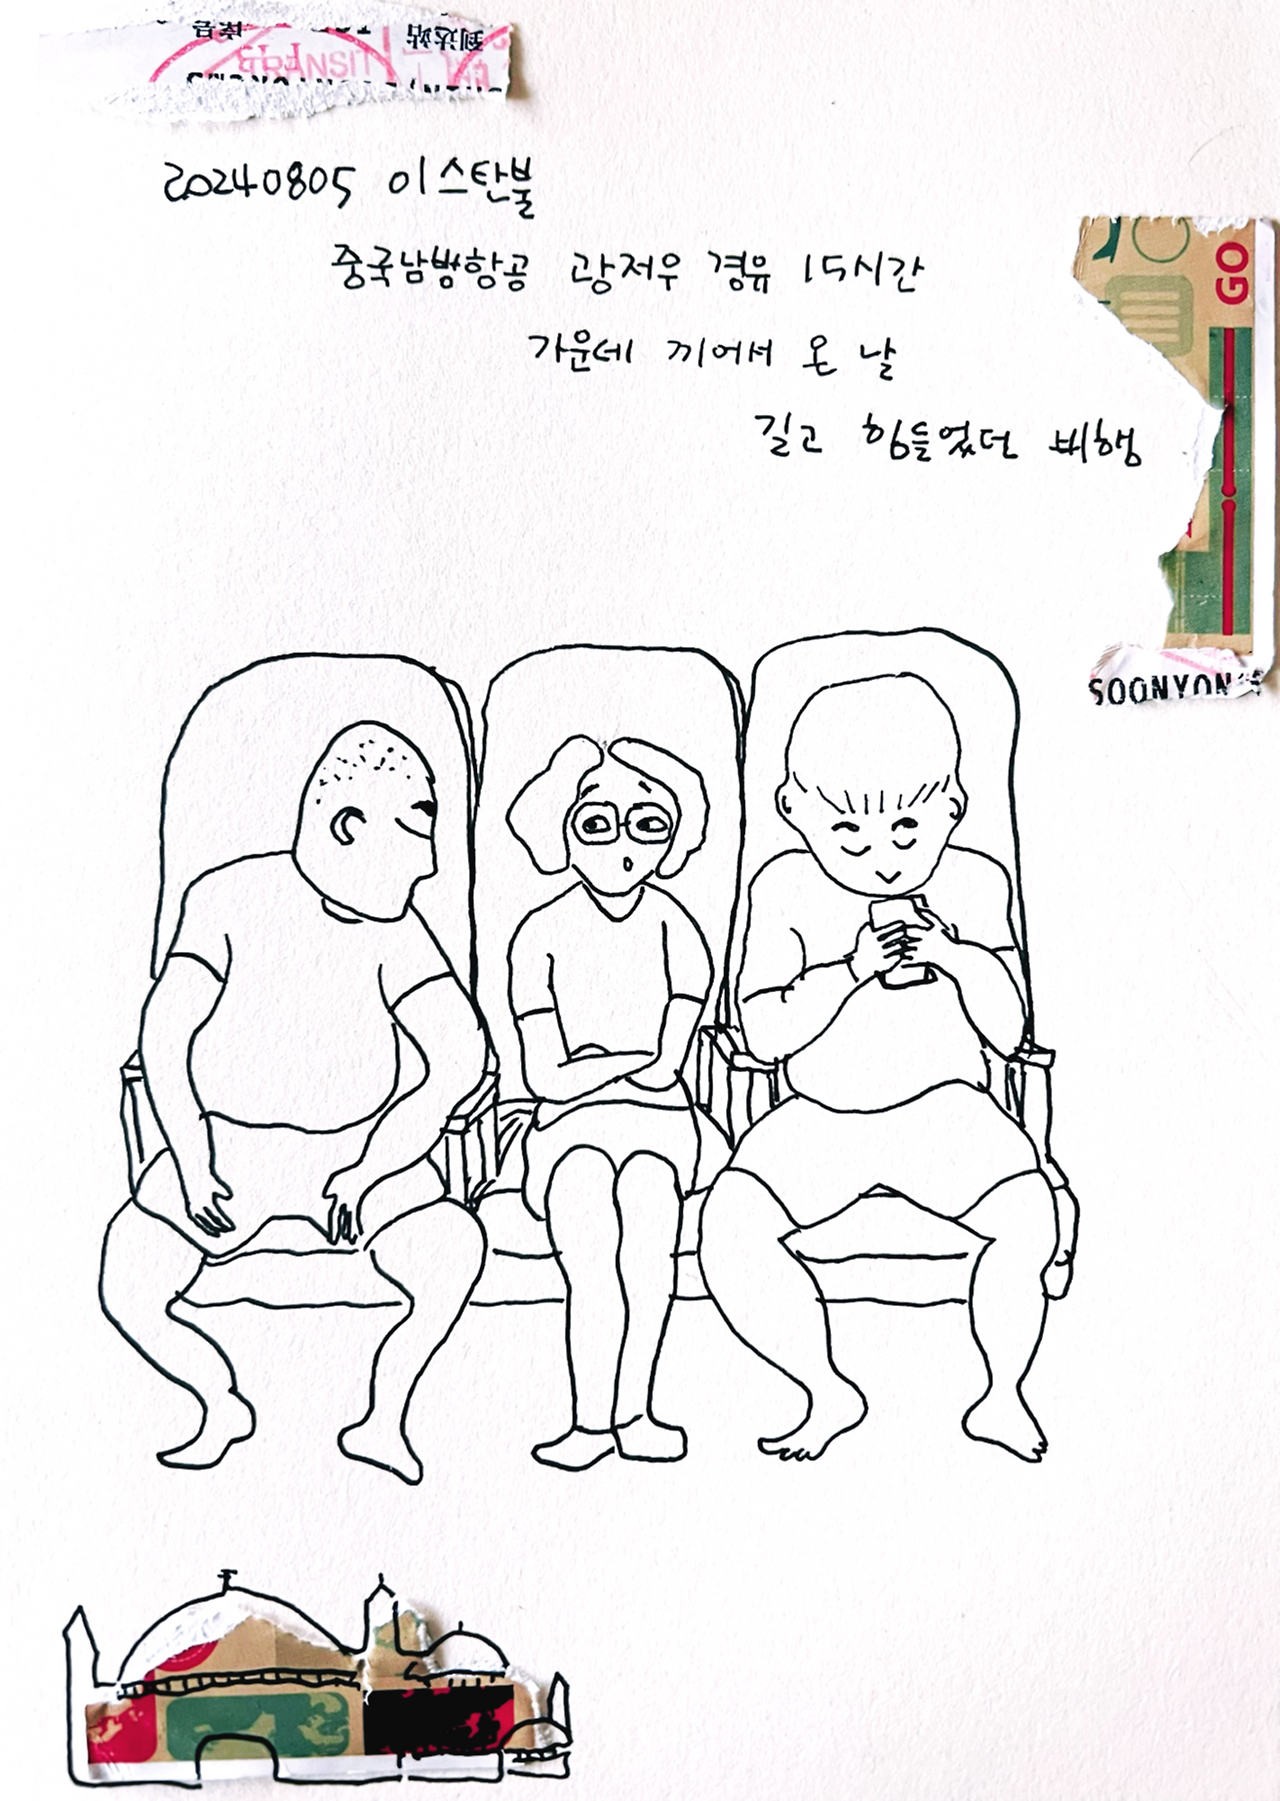 到达站
TRANSIT
20240805 이스탄불
중국남방항공 광저우 경유 15시간
가운데 끼어서 온 날
길고 힘들었던 비행
GO
SOONYON